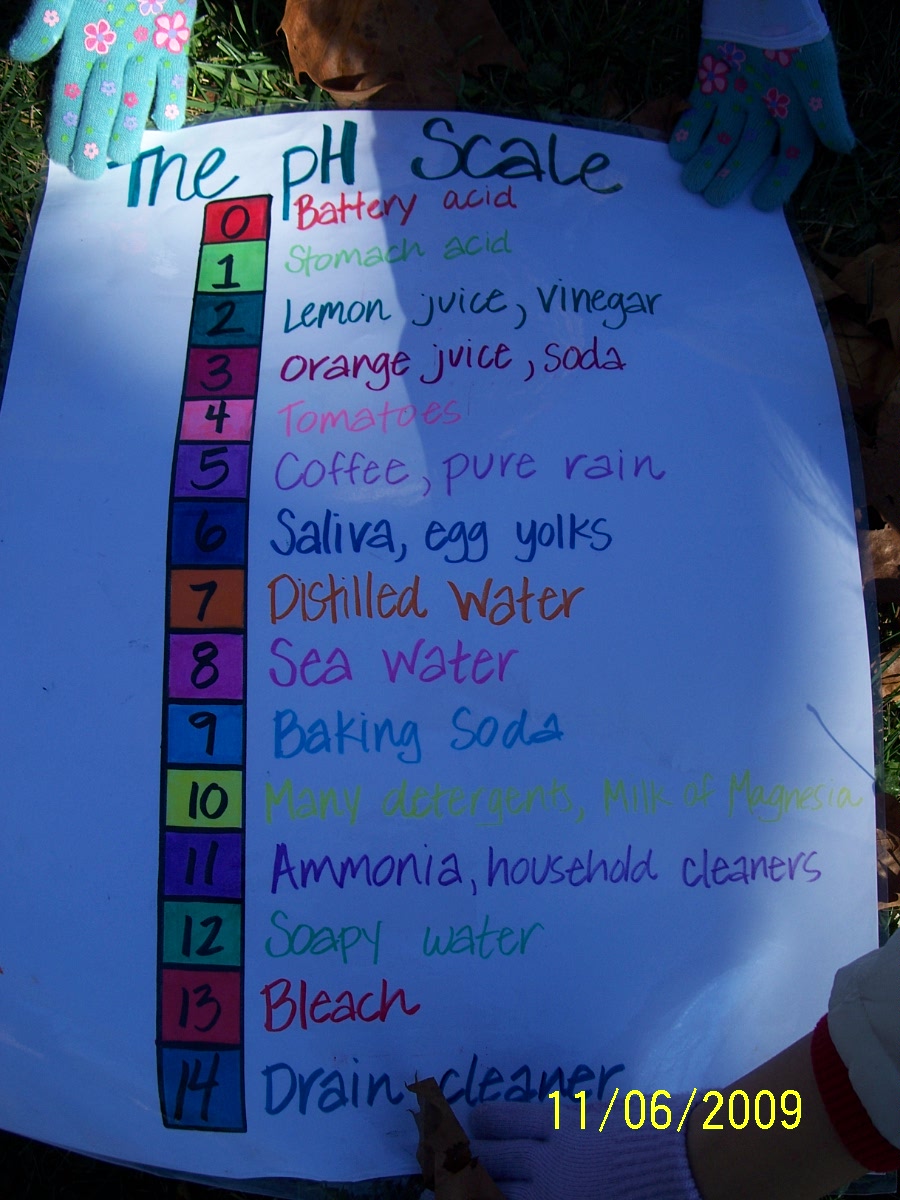 The pH Scale
0 Battery acid
1 Stomach acid
2 Lemon juice, vinegar
3 orange juice, soda
4 Tomatoes
5 Coffee, pure rain
6 Saliva, egg yolks
7 Distilled Water
8 Sea Water
9 Baking Soda
10 Many detergents, Milk of Magnesia
11 Ammonia, household cleaners
12 Soapy water
13 Bleach
14 Drain cleaner
11/06/2009